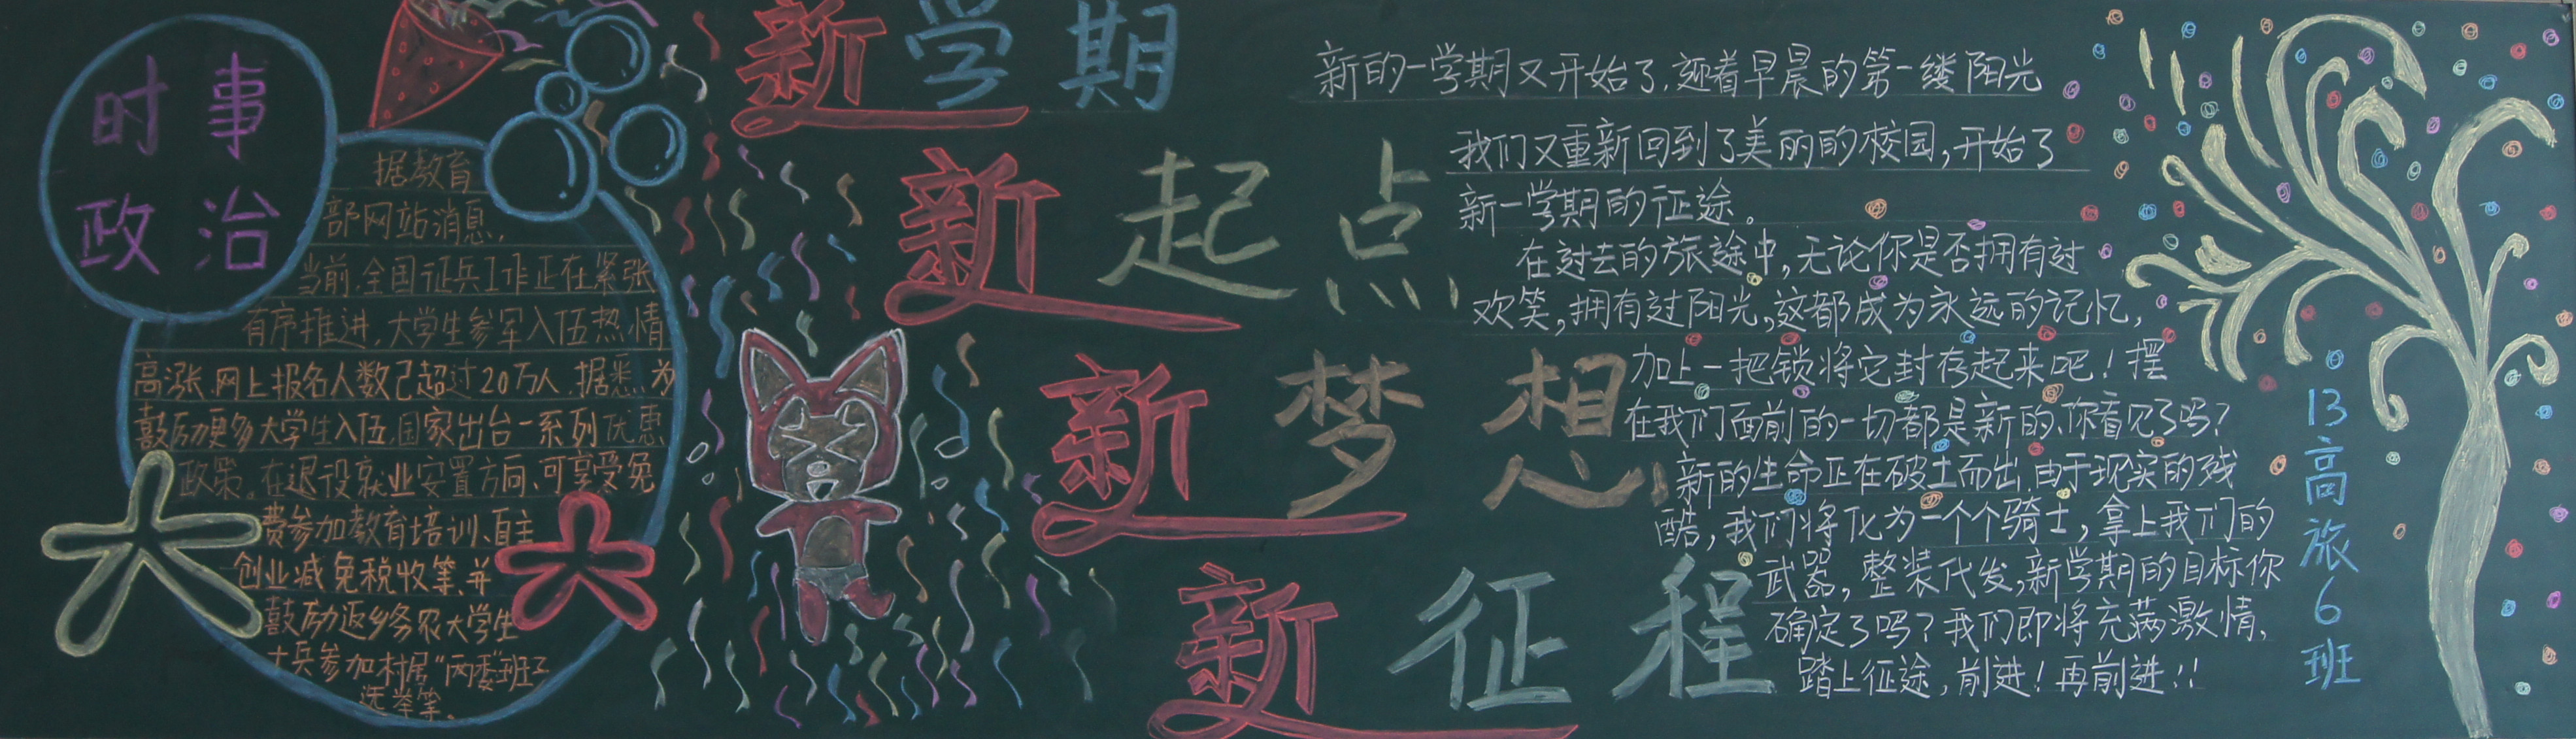 时事
政治
据教育
部网站消息,
当前,全国征兵工作正在紧张
有序推进,大学生参军入伍热情
高涨,网上报名人数已超过20万人.据悉,为
鼓励更多大学生入伍,国家出台一系列优惠
政策。在退役就业安置方向、可享受免
费参加教育培训、自主
创业减免税收等,并
鼓励返乡务农大学生
士兵参加村居“两委”班子
选举等、
新学期
新起点
新梦想
新征程
新的一学期又开始了,迎着早晨的第一缕阳光
我们又重新回到了美丽的校园,开始了
新一学期的征途。
在过去的旅途中,无论你是否拥有过
欢笑,拥有过阳光,这都成为永远的记忆,
加上一把锁将它封存起来吧!摆
在我们面前的一切都是新的,你看见了吗?
新的生命正在破土而出,由于现实的残
酷,我们将化为一个个骑士,拿上我们的
武器,整装代发,新学期的目标你
确定了吗?我们即将充满激情,
踏上征途,前进!再前进!!
13高旅6班